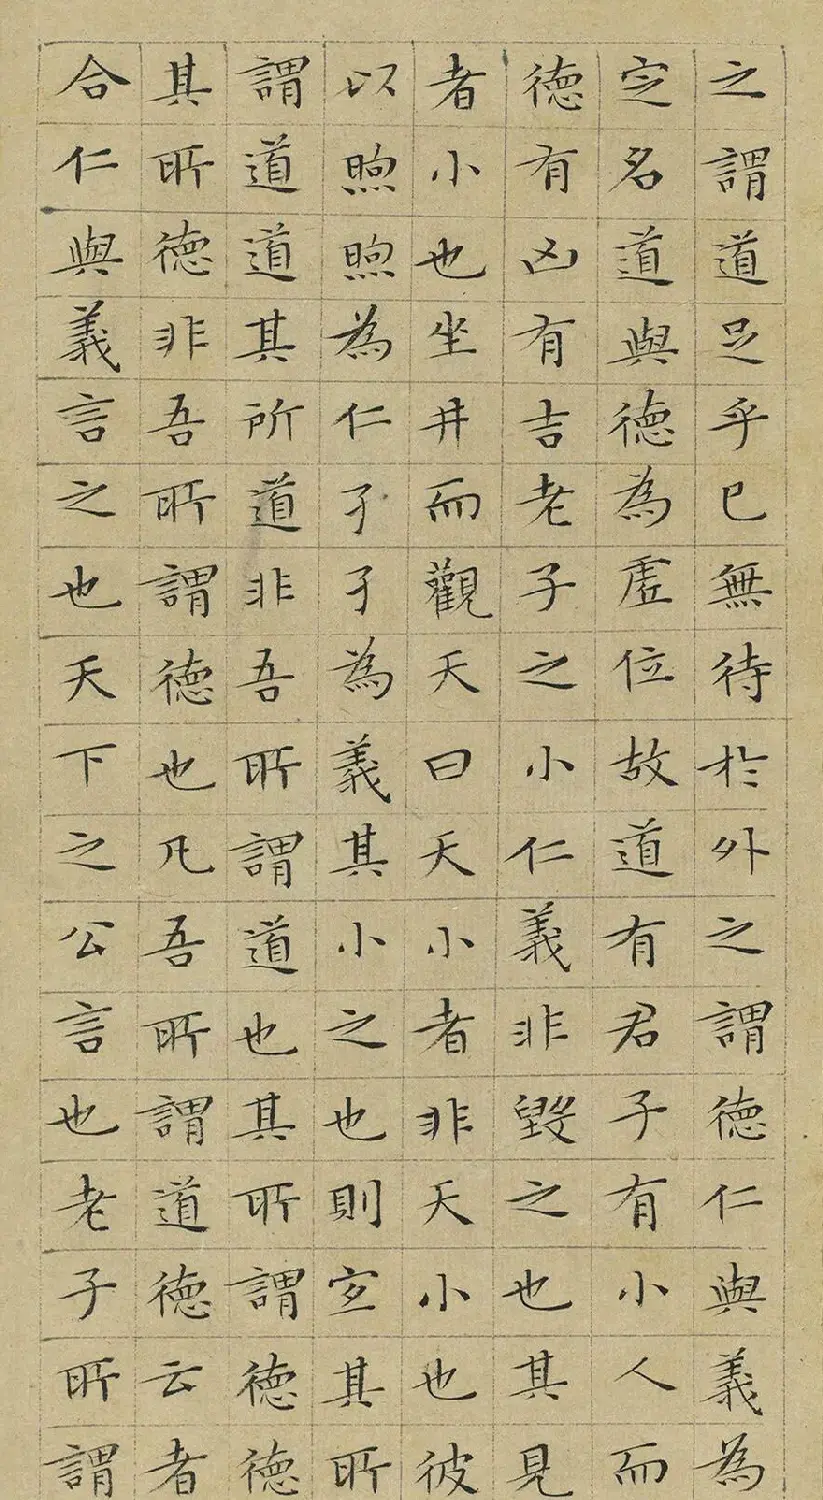 之謂道足乎已無待於外之謂德仁與義為
定名道與德為虛位故道有君子有小人而
德有凶有吉老子之小仁義非毀之也其見
者小也坐井而觀天曰天小者非天小也彼
以煦煦為仁孑孑為義其小之也則宜其所
謂道道其所道非吾所謂道也其所謂德德
其所德非吾所謂德也凡吾所謂道德云者
合仁與義言之也天下之公言也老子所謂